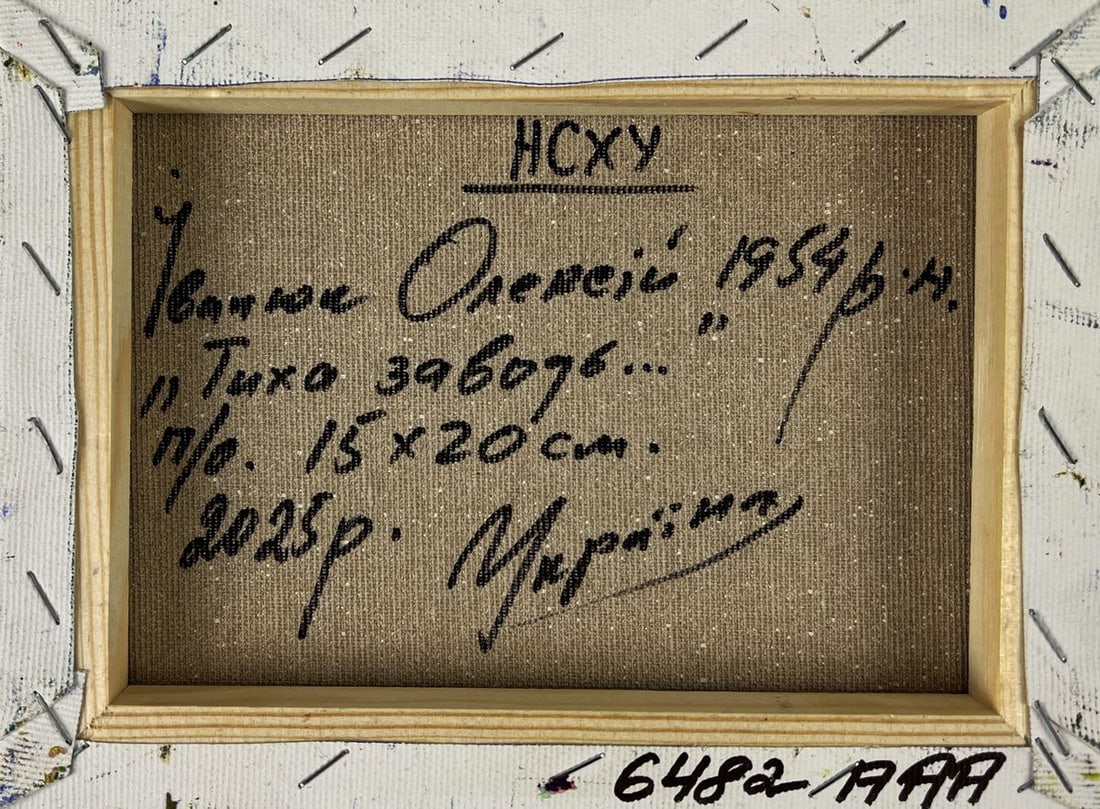 НСХУ
Іванюк Олексій 1954 р.н.
„Тиха заводь..."
п/о. 15х20 см.
2025р. Україна
6482 ААА